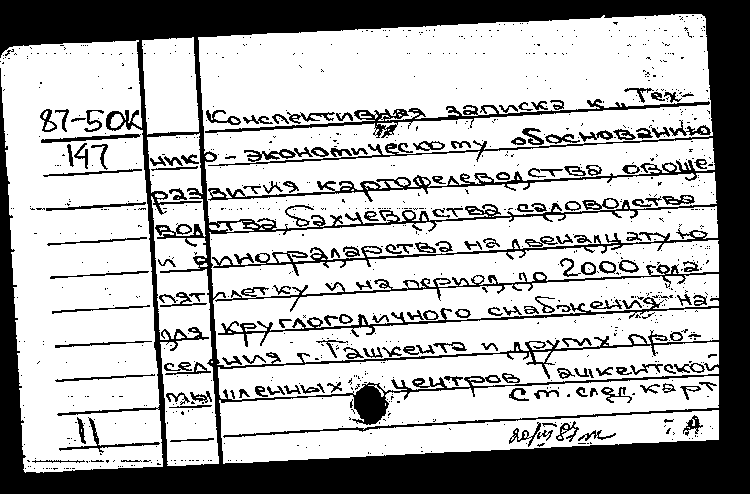 87-50К
147
Конспективная записка к „Тех-
нико-экономическому обоснованию
развития картофелеводства, овоще-
водства, бахчеводства, садоводства
и виноградарства на двенадцатую
пятилетку и на период до 2000 года
для круглогодичного снабжения на-
селения г. Ташкента и других про-
мышленных центров Ташкентской
см. след. карт
11